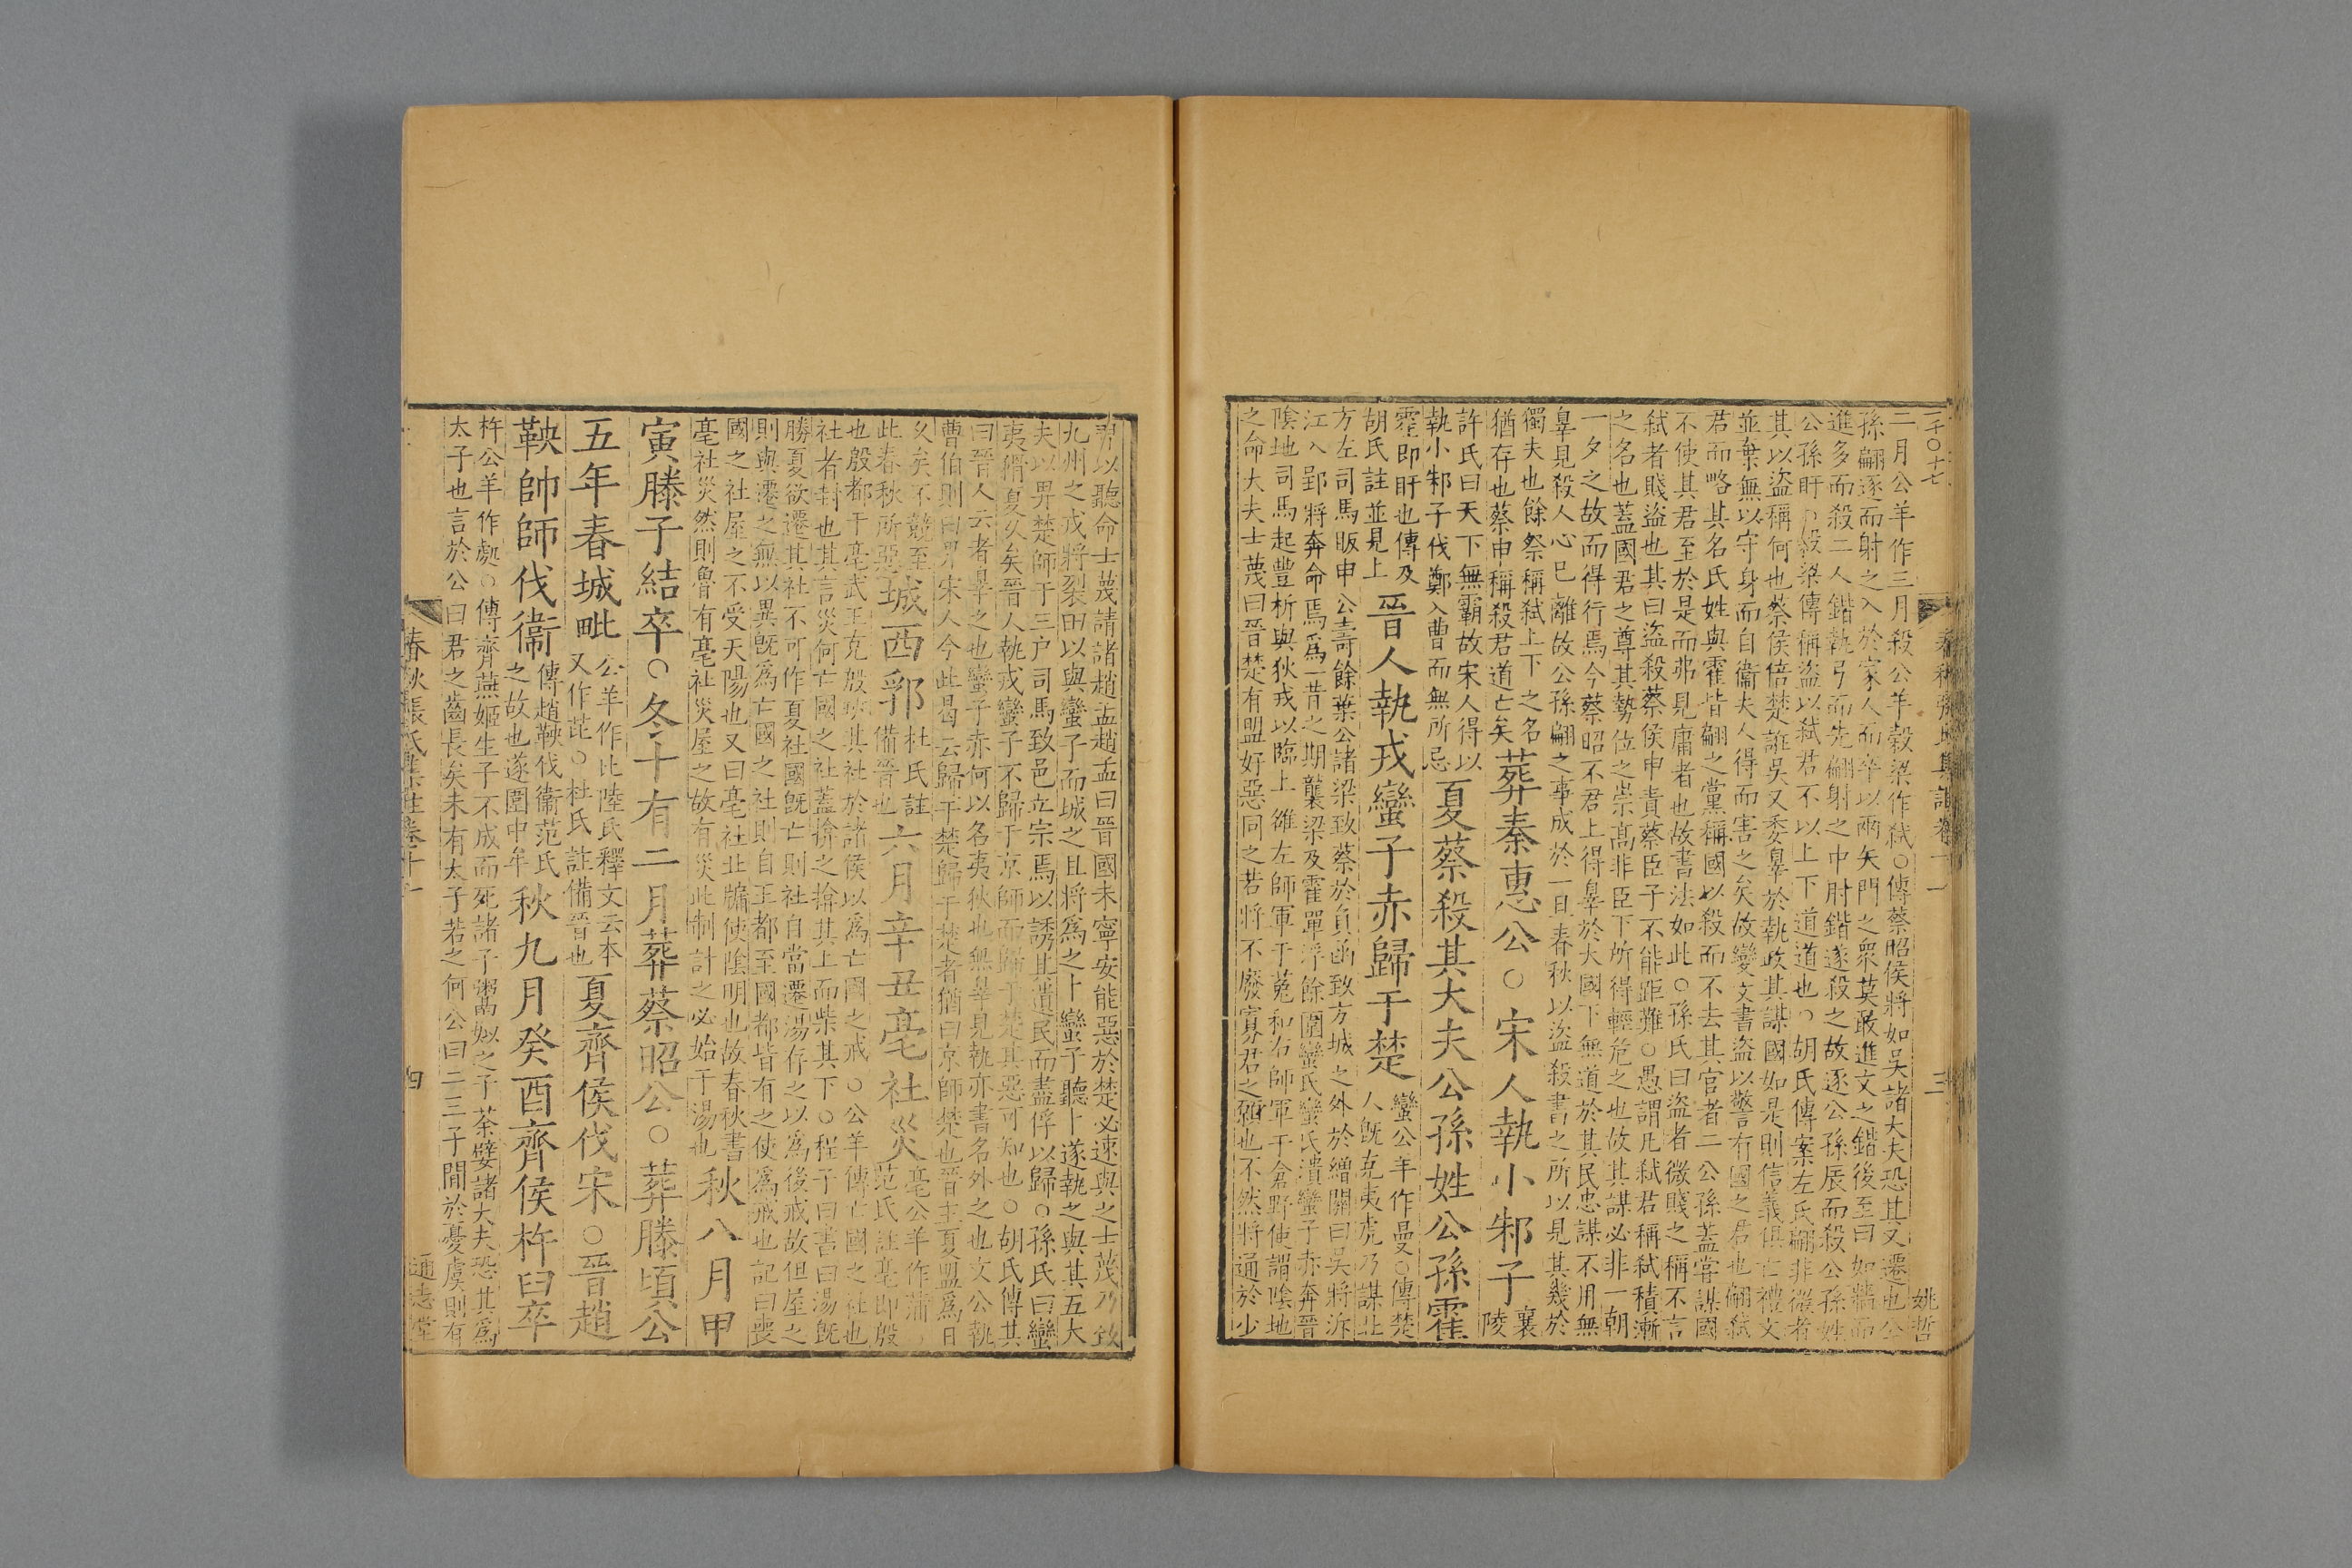 春秋張氏集註卷十一
三
姚哲
二月公羊作三月殺公羊穀梁作弒○傳蔡昭侯將如吳諸大夫恐其又遷也公
孫翩逐而射之入於家人而卒以兩矢門之衆莫敢進文之鍇後至曰如牆而
進多而殺二人鍇執弓而先翩射之中肘鍇遂殺之故逐公孫辰而殺公孫姓
公孫盱○穀梁傳稱盜以弒君不以上下道道也○胡氏傳案左氏翩非微者
其以盜稱何也蔡侯倍楚誑吳又委辠於執政其謀國如是則信義俱亡禮文
並棄無以守身而自衞夫人得而害之矣故變文書盜以警有國之君也翩弒
君而略其名氏姓與霍皆翩之黨稱國以殺而不去其官者二公孫蓋嘗謀國
不使其君至於是而弗見庸者也故書法如此○孫氏曰盜者微賤之稱不言
弒者賤盜也其曰盜殺蔡侯申責蔡臣子不能距難○愚謂凡弒君稱弒積漸
之名也蓋國君之尊其勢位之崇高非臣下所得輕危之也故其謀必非一朝
一夕之故而得行焉今蔡昭不君上得辠於大國下無道於其民忠謀不用無
辠見殺人心已離故公孫翩之事成於一旦春秋以盜殺書之所以見其幾於
獨夫也餘祭稱弒上下之名
猶存也蔡申稱殺君道亡矣
葬秦惠公○宋人執小邾子
襄陵
許氏曰天下無霸故宋人得以
執小邾子伐鄭入曹而無所忌
夏蔡殺其大夫公孫姓公孫霍
霍即盱也傳及
胡氏註並見上
晉人執戎蠻子赤歸于楚
蠻公羊作曼○傳楚
人既克夷虎乃謀北
方左司馬眅申公壽餘葉公諸梁致蔡於負函致方城之外於繒關曰吳將泝
江入郢將奔命焉爲一昔之期襲梁及霍單浮餘圍蠻氏蠻氏潰蠻子赤奔晉
陰地司馬起豐析與狄戎以臨上雒左師軍于菟和右師軍于倉野使謂陰地
之命大夫士蔑曰晉楚有盟好惡同之若將不廢寡君之願也不然將通於少
習以聽命士蔑請諸趙孟趙孟曰晉國未寧安能惡於楚必速與之士蔑乃致
九州之戎將裂田以與蠻子而城之且將爲之卜蠻子聽卜遂執之與其五大
夫以畀楚師于三戶司馬致邑立宗焉以誘其遺民而盡俘以歸○孫氏曰蠻
夷猾夏久矣晉人執戎蠻子不歸于京師而歸于楚其惡可知也○胡氏傳其
曰晉人云者辠之也蠻子赤何以名夷狄也無辠見執亦書名外之也文公執
曹伯則曰畀宋人今此曷云歸于楚歸于楚者猶曰京師楚也晉主夏盟爲日
久矣不競至
此春秋所惡
城西郛
杜氏註
備晉也
六月辛丑亳社災
亳公羊作蒲
范氏註亳即殷
也殷都于亳武王克殷班其社於諸侯以爲亡國之戒○公羊傳亡國之社也
社者封也其言災何亡國之社蓋揜之揜其上而柴其下○程子曰書曰湯旣
勝夏欲遷其社不可作夏社國旣亡則社自當遷湯存之以爲後戒故但屋之
則與遷之無以異旣爲亡國之社則自王都至國都皆有之使爲戒也記曰喪
國之社屋之不受天陽也又曰亳社北牖使陰明也故春秋書
亳社災然則魯有亳社災屋之故有災此制計之必始于湯也
秋八月甲
寅滕子結卒○冬十有二月葬蔡昭公○葬滕頃公
五年春城毗
公羊作比陸氏釋文云本
又作芘○杜氏註備晉也
夏齊侯伐宋○晉趙
鞅帥師伐衞
傳趙鞅伐衞范氏
之故也遂圍中牟
秋九月癸酉齊侯杵臼卒
杵公羊作處○傳齊燕姬生子不成而死諸子鬻姒之子荼嬖諸大夫恐其爲
太子也言於公曰君之齒長矣未有太子若之何公曰二三子閒於憂虞則有
春秋張氏集註卷十一
四
通志堂